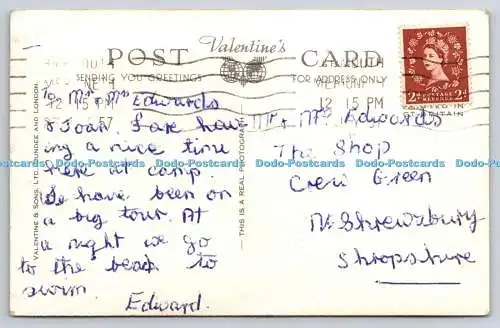 Valentine's
POST CARD
SENDING YOU GREETINGS
FOR ADDRESS ONLY
12 15 PM
57
12 15 PM
2d POSTAGE REVENUE 2d
VALENTINE & SONS, LTD., DUNDEE AND LONDON.
THIS IS A REAL PHOTOGRAPH
To Mr Mrs Edwards
& Joan. I are hav
ing a nice time
here at camp.
We have been on
a big tour. At
a night we go
to the beach to
swim.
Edward.
Mr & Mrs Edwards
The Shop
Crew Green
Nr. Shrewsbury
Shropshire
Postcards www.ipostcards.com